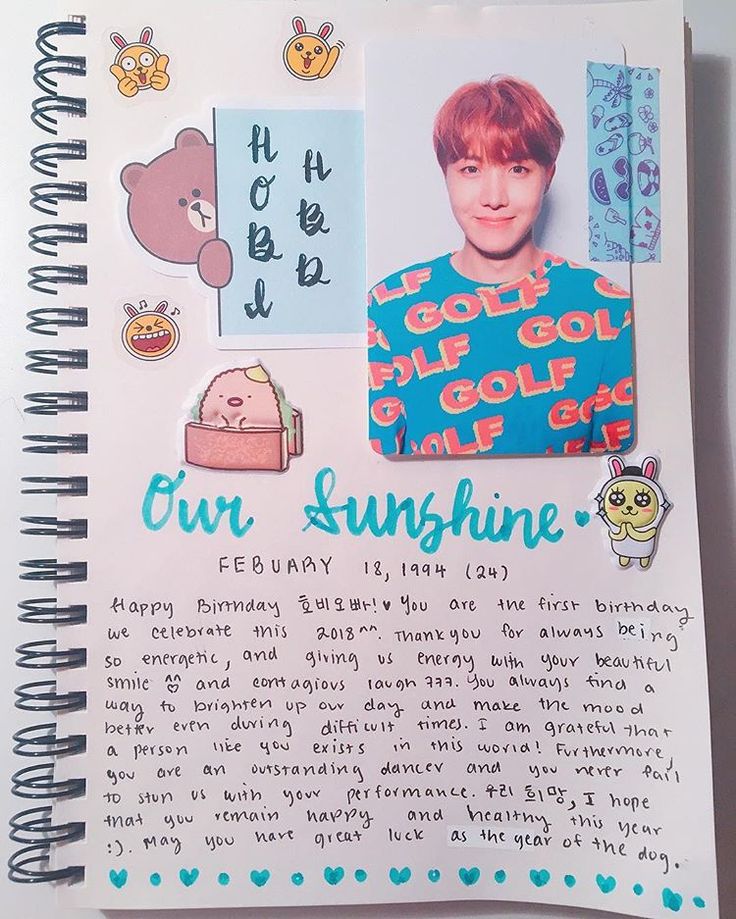 HOBI
HBD
GOLF
GOLF
GOLF
GOLF
GOLF
GOLF
Our Sunshine
FEBUARY 18, 1994 (24)
Happy Birthday 호비오빠!♥ You are the first birthday
we celebrate this 2018^^. Thank you for always being
so energetic, and giving us energy with your beautiful
smile ^^ and contagious laugh ㅋㅋㅋ. You always find a
way to brighten up our day and make the mood
better even during difficult times. I am grateful that
a person like you exists in this world! Furthermore,
you are an outstanding dancer and you never fail
to stun us with your performance. 우리 희망, I hope
that you remain happy and healthy this year
:). May you have great luck as the year of the dog.